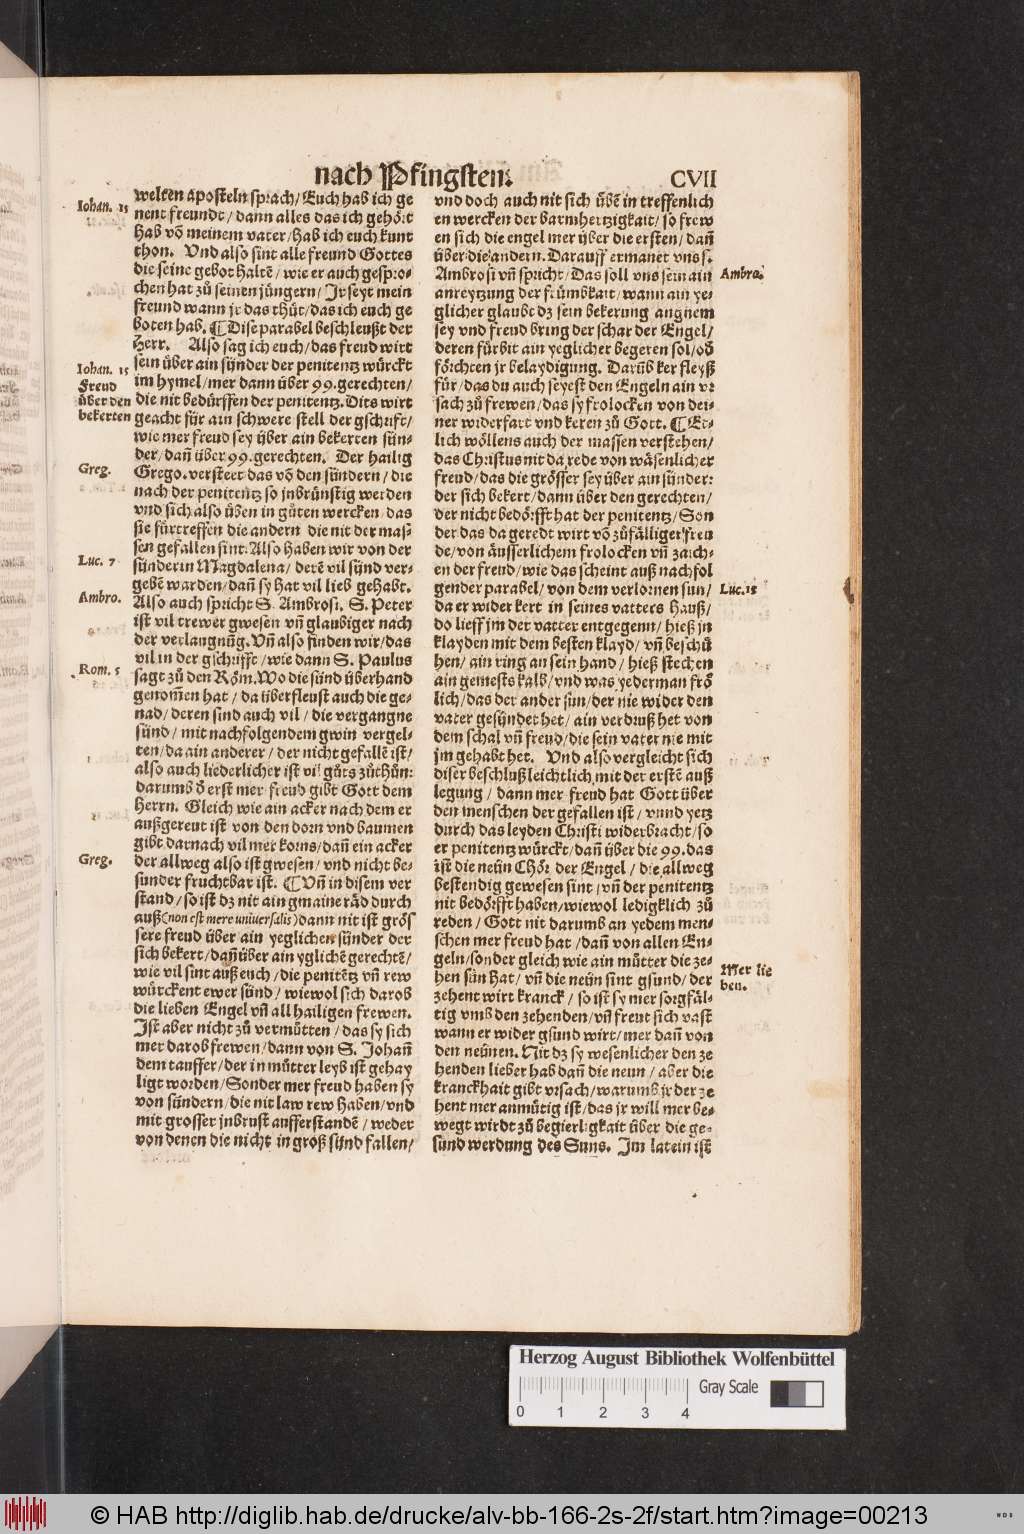 nach Pfingsten.
CVII
Iohan. 15
welten aposteln sprach/ Euch hab ich ge
nent freundt/ dann alles das ich gehört
hab võ meinem vater/ hab ich euch kunt
thon. Vnd also sint alle freund Gottes
die seine gebot haltẽ/ wie er auch gespro-
chen hat zů seinen jüngern/ Jr seyt mein
freund wann jr das thůt/das ich euch ge
boten hab. ¶ Dise parabel beschleußt der
Herr. Also sag ich euch/ das freud wirt
Iohan. 15
sein über ain sünder der penitentz würckt
Freud
im hymel/mer dann über 99.gerechten/
über den
die nit bedürffen der penitentz. Dits wirt
bekerten
geacht für ain schwere stell der gschrift/
wie mer freud sey über ain bekerten sün-
der/ dañ über 99.gerechten. Der hailig
Greg.
Grego. versteet das võ den sündern/ die
nach der penitentz so jnbrünstig werden
vnd sich also üben in gůten wercken das
sie fürtreffen die andern die nit der mas-
sen gefallen sint. Also haben wir von der
Luc. 7
sünderin Magdalena/ derẽ vil sünd ver-
gebẽ warden/ dañ sy hat vil lieb gehabt.
Ambro.
Also auch spricht S. Ambrosi. S. Peter
ist vil trewer gwesen vñ glaubiger nach
der verlangnũg. Vñ also finden wir/das
vil in der gschrifft/ wie dann S. Paulus
Rom. 5
sagt zů den Röm. Wo die sünd überhand
genom̃en hat/ da überfleust auch die ge-
nad/ deren sind auch vil/ die vergangne
sünd/ mit nachfolgendem gwin vergel-
ten/da ain anderer/ der nicht gefallẽ ist/
also auch liederlicher ist vil gůts zůthůn:
darumb ð erst mer freud gibt Gott dem
Herrn. Gleich wie ain acker nach dem er
außgereut ist von den dorn vnd baumen
gibt darnach vil mer korns/dañ ein acker
Greg.
der allweg also ist gwesen/ vnd nicht be-
sunder fruchtbar ist. ¶ Vñ in disem ver
stand/ so ist dz nit ain gmaine räd durch
auß (non est mere universalis) dann nit ist grös
sere freud über ain yeglichen sünder der
sich bekert/ dañ über ain yglichẽ gerechtẽ/
wie vil sint auß euch/ die penitẽtz vñ rew
würckent ewer sünd/ wiewol sich darob
die lieben Engel vñ all hailigen frewen.
Ist aber nicht zů vermůtten/ das sy sich
mer darob frewen/dann von S. Johañ
dem tauffer/der in můtter leyb ist gehay
ligt worden/ Sonder mer freud haben sy
von sündern/ die nit law rew haben/ vnd
mit grosser jnbrust aufferstandẽ/ weder
von denen die nicht in groß sünd fallen/
vnd doch auch nit sich übẽ in treffenlich
en wercken der barmhertzigkait/ so frew
en sich die engel mer über die ersten/ dañ
über die andern. Darauff ermanet vns s.
Ambro.
Ambrosi vñ spricht/ Das soll vns sein ain
anreytzung der frümbkait/ wann ain ye-
glicher glaubt dz sein bekerung angnem
sey vnd freud bring der schar der Engel/
deren fürbit ain yeglicher begeren sol/ oð
förchten jr belaydigung. Darüb ker fleyß
für/ das du auch seyest den Engeln ain vr
sach zů frewen/das sy frolocken von dei-
ner widerfart vnd keren zů Gott. ¶ Et-
lich wöllens auch der massen verstehen/
das Christus nit da rede von wäsenlicher
freud/das die grösser sey über ain sünder:
der sich bekert/ dann über den gerechten/
der nicht bedörfft hat der penitentz/ Son
der das da geredt wirt võ zůfälliger freu
de/ von äusserlichem frolocken vñ zaich-
en der freud/ wie das scheint auß nachfol
Luc. 15
gender parabel/ von dem verlornen sun/
da er wider kert in seines vatters hauß/
do lieff jm der vatter entgegenn/ hieß jn
klayden mit dem besten klayd/ vñ beschů
hen/ ain ring an sein hand/ hieß stechen
ain gemests kalb/ vnd was yederman frö
lich/das der ander sun/der nie wider den
vater gesündet het/ ain verdruß het von
dem schal vñ freud/die sein vater nie mit
jm gehabt het. Vnd also vergleicht sich
diser beschluß leichtlich mit der erstẽ auß
legung/ dann mer freud hat Gott über
den menschen der gefallen ist/ vnnd yetz
durch das leyden Christi widerbracht/ so
er penitentz würckt/dañ über die 99.das
ist die neün Chör der Engel/ die allweg
bestendig gewesen sint/ vñ der penitentz
nit bedörfft haben/wiewol ledigklich zů
reden/ Gott nit darumb an yedem men-
schen mer freud hat/ dañ von allen En-
geln/sonder gleich wie ain můtter die ze-
Mer lie
hen sün hat/ vñ die neün sint gsund/ der
ben.
zehent wirt kranck/ so ist sy mer sorgfäl-
tig vmb den zehenden/vñ freut sich vast
wann er wider gsund wirt/mer dañ von
den neünen. Nit dz sy wesenlicher den ze
henden lieber hab dañ die neun/ aber die
kranckhait gibt vrsach/warumb jr der ze
hent mer anmůtig ist/das jr will mer be-
wegt wirdt zů begierligkait über die ge-
sund werdung des Suns. Jm latein ist
Herzog August Bibliothek Wolfenbüttel
Gray Scale
0 1 2 3 4
© HAB http://diglib.hab.de/drucke/alv-bb-166-2s-2f/start.htm?image=00213